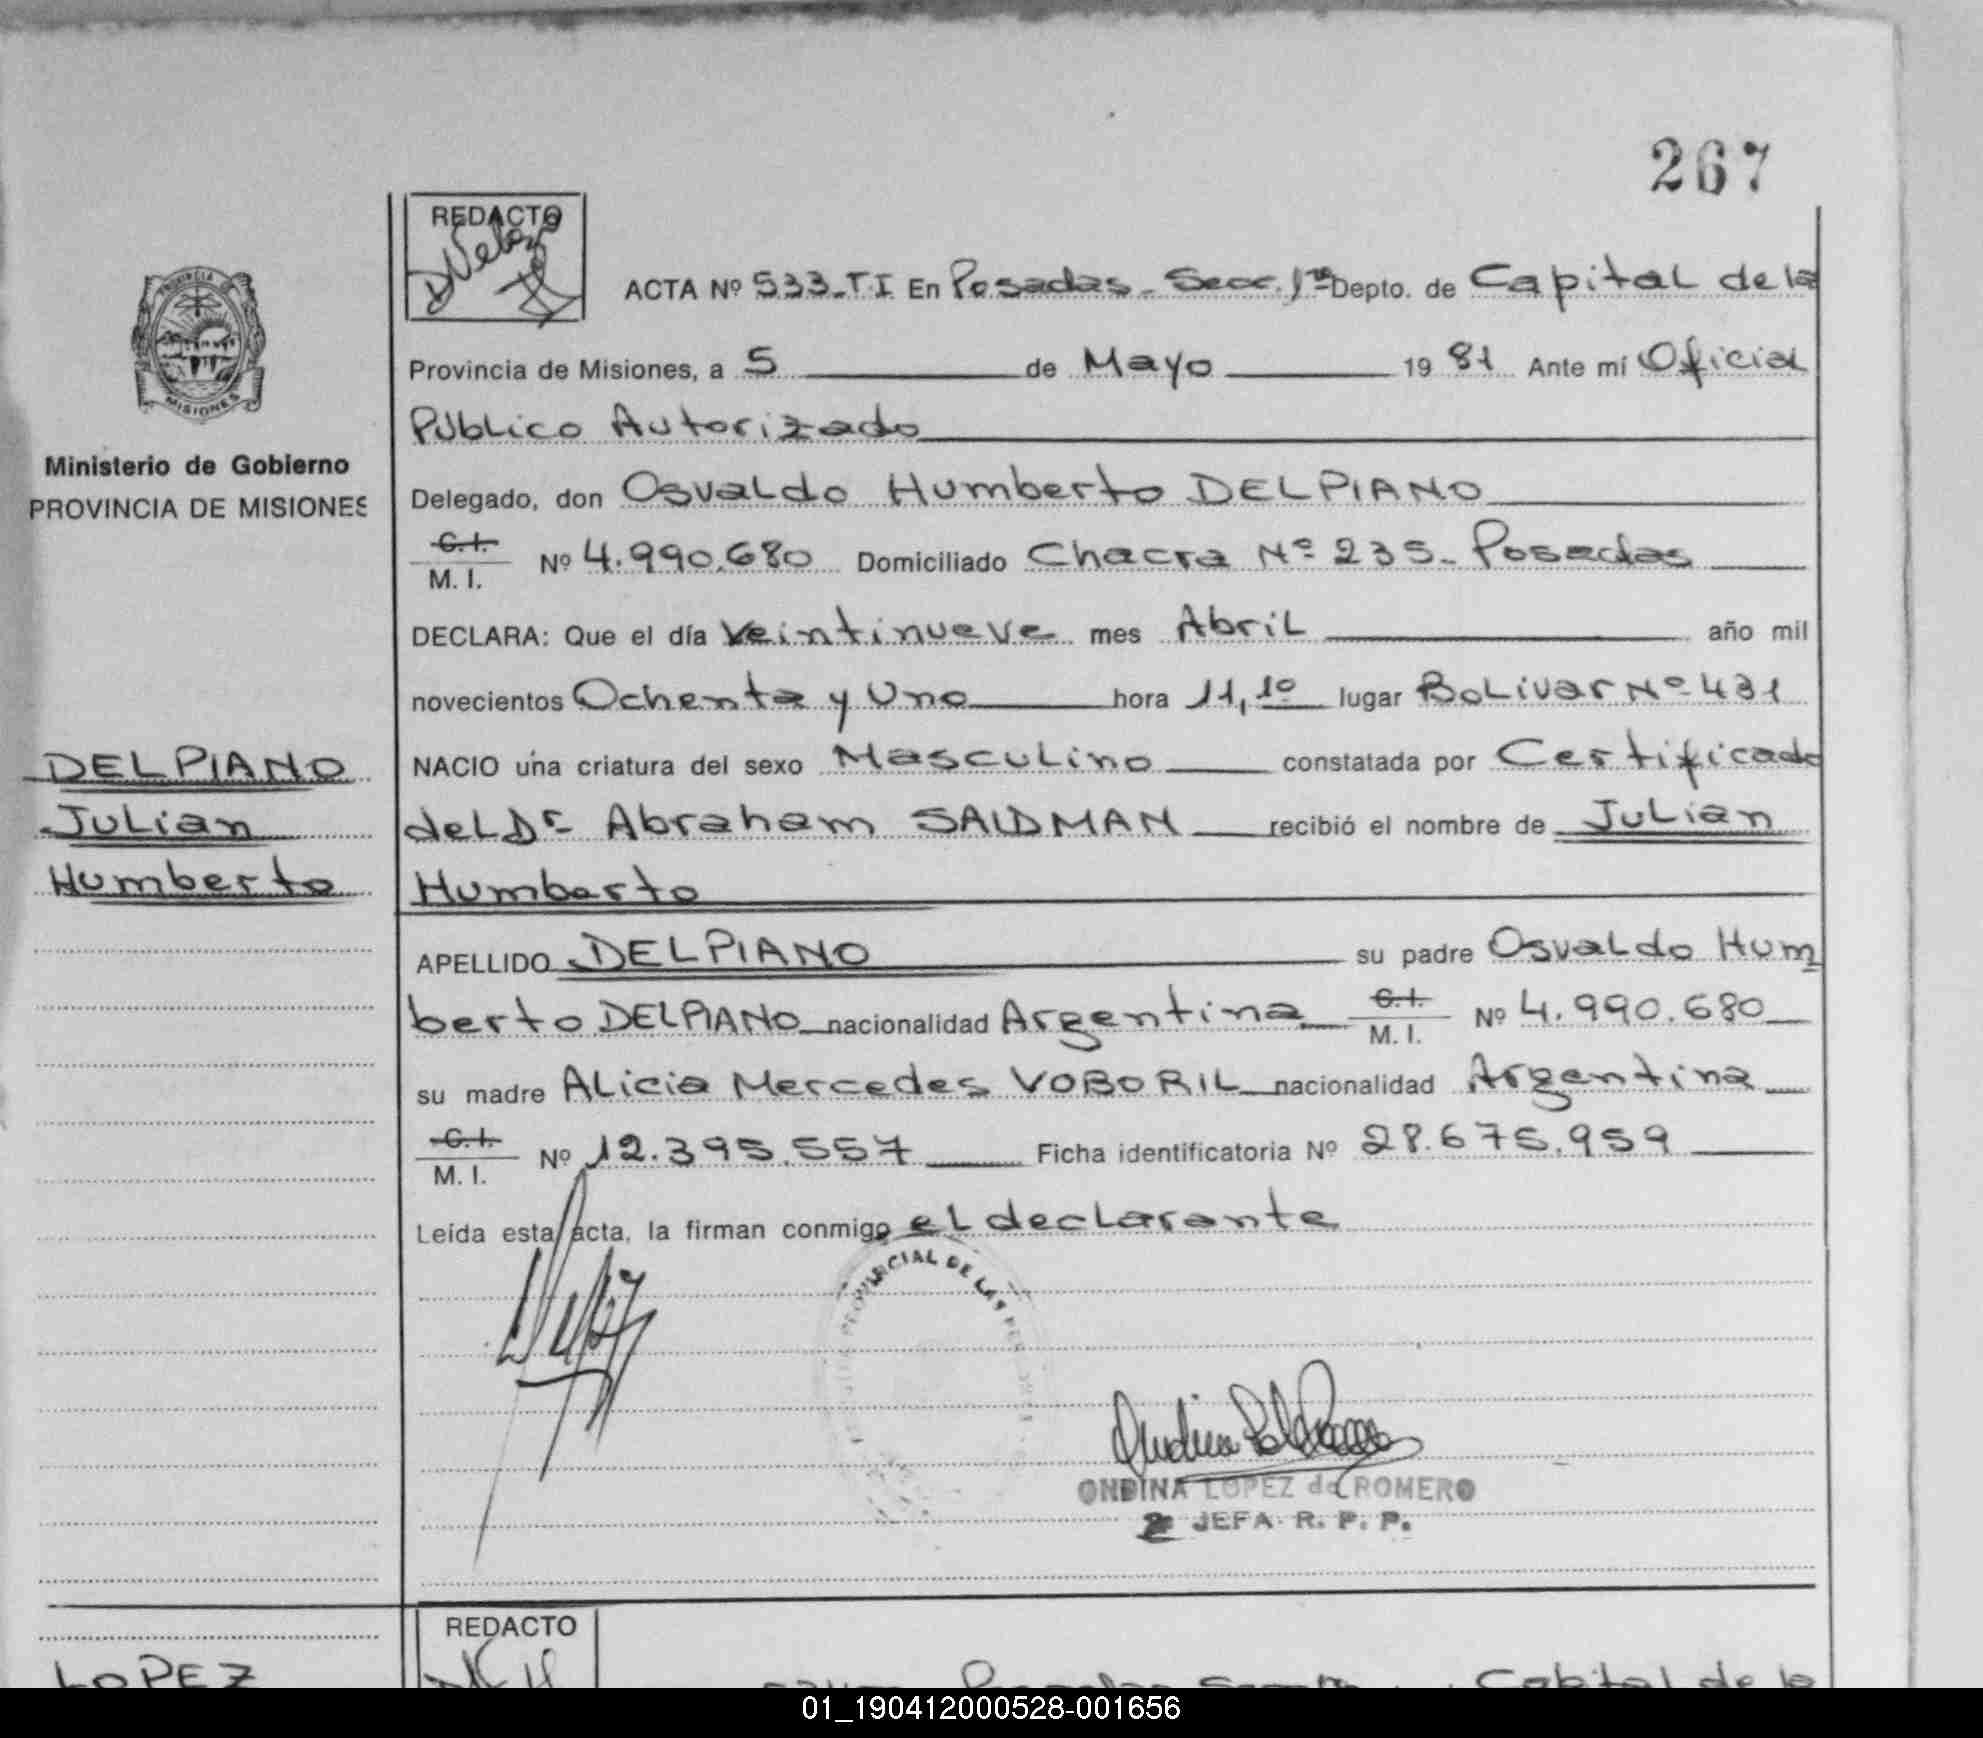 267
REDACTO
ACTA Nº 533-TI En Posadas - Secc. 1ra Depto. de Capital de la
Provincia de Misiones, a 5 de Mayo 19 81 Ante mí Oficial
Público Autorizado
Ministerio de Gobierno
PROVINCIA DE MISIONES
Delegado, don Osvaldo Humberto DELPIANO
C.I.
M. I. Nº 4.990.680 Domiciliado Chacra Nº 235 - Posadas
DECLARA: Que el día Veintinueve mes Abril año mil
novecientos Ochenta y Uno hora 11,10 lugar Bolivar Nº 431
DELPIANO
Julian
Humberto
NACIO una criatura del sexo Masculino constatada por Certificado
del Dr. Abraham SAIDMAN recibió el nombre de Julian
Humberto
APELLIDO DELPIANO su padre Osvaldo Hum
berto DELPIANO nacionalidad Argentina C.I. M. I. Nº 4.990.680
su madre Alicia Mercedes VOBORIL nacionalidad Argentina
C.I.
M. I. Nº 12.395.557 Ficha identificatoria Nº 28.675.959
Leída esta acta, la firman conmigo el declarante
PROVINCIAL DE LAS
ONDINA LOPEZ de ROMERO
JEFA R. P. P.
REDACTO
LOPEZ
Capital de la
01_190412000528-001656